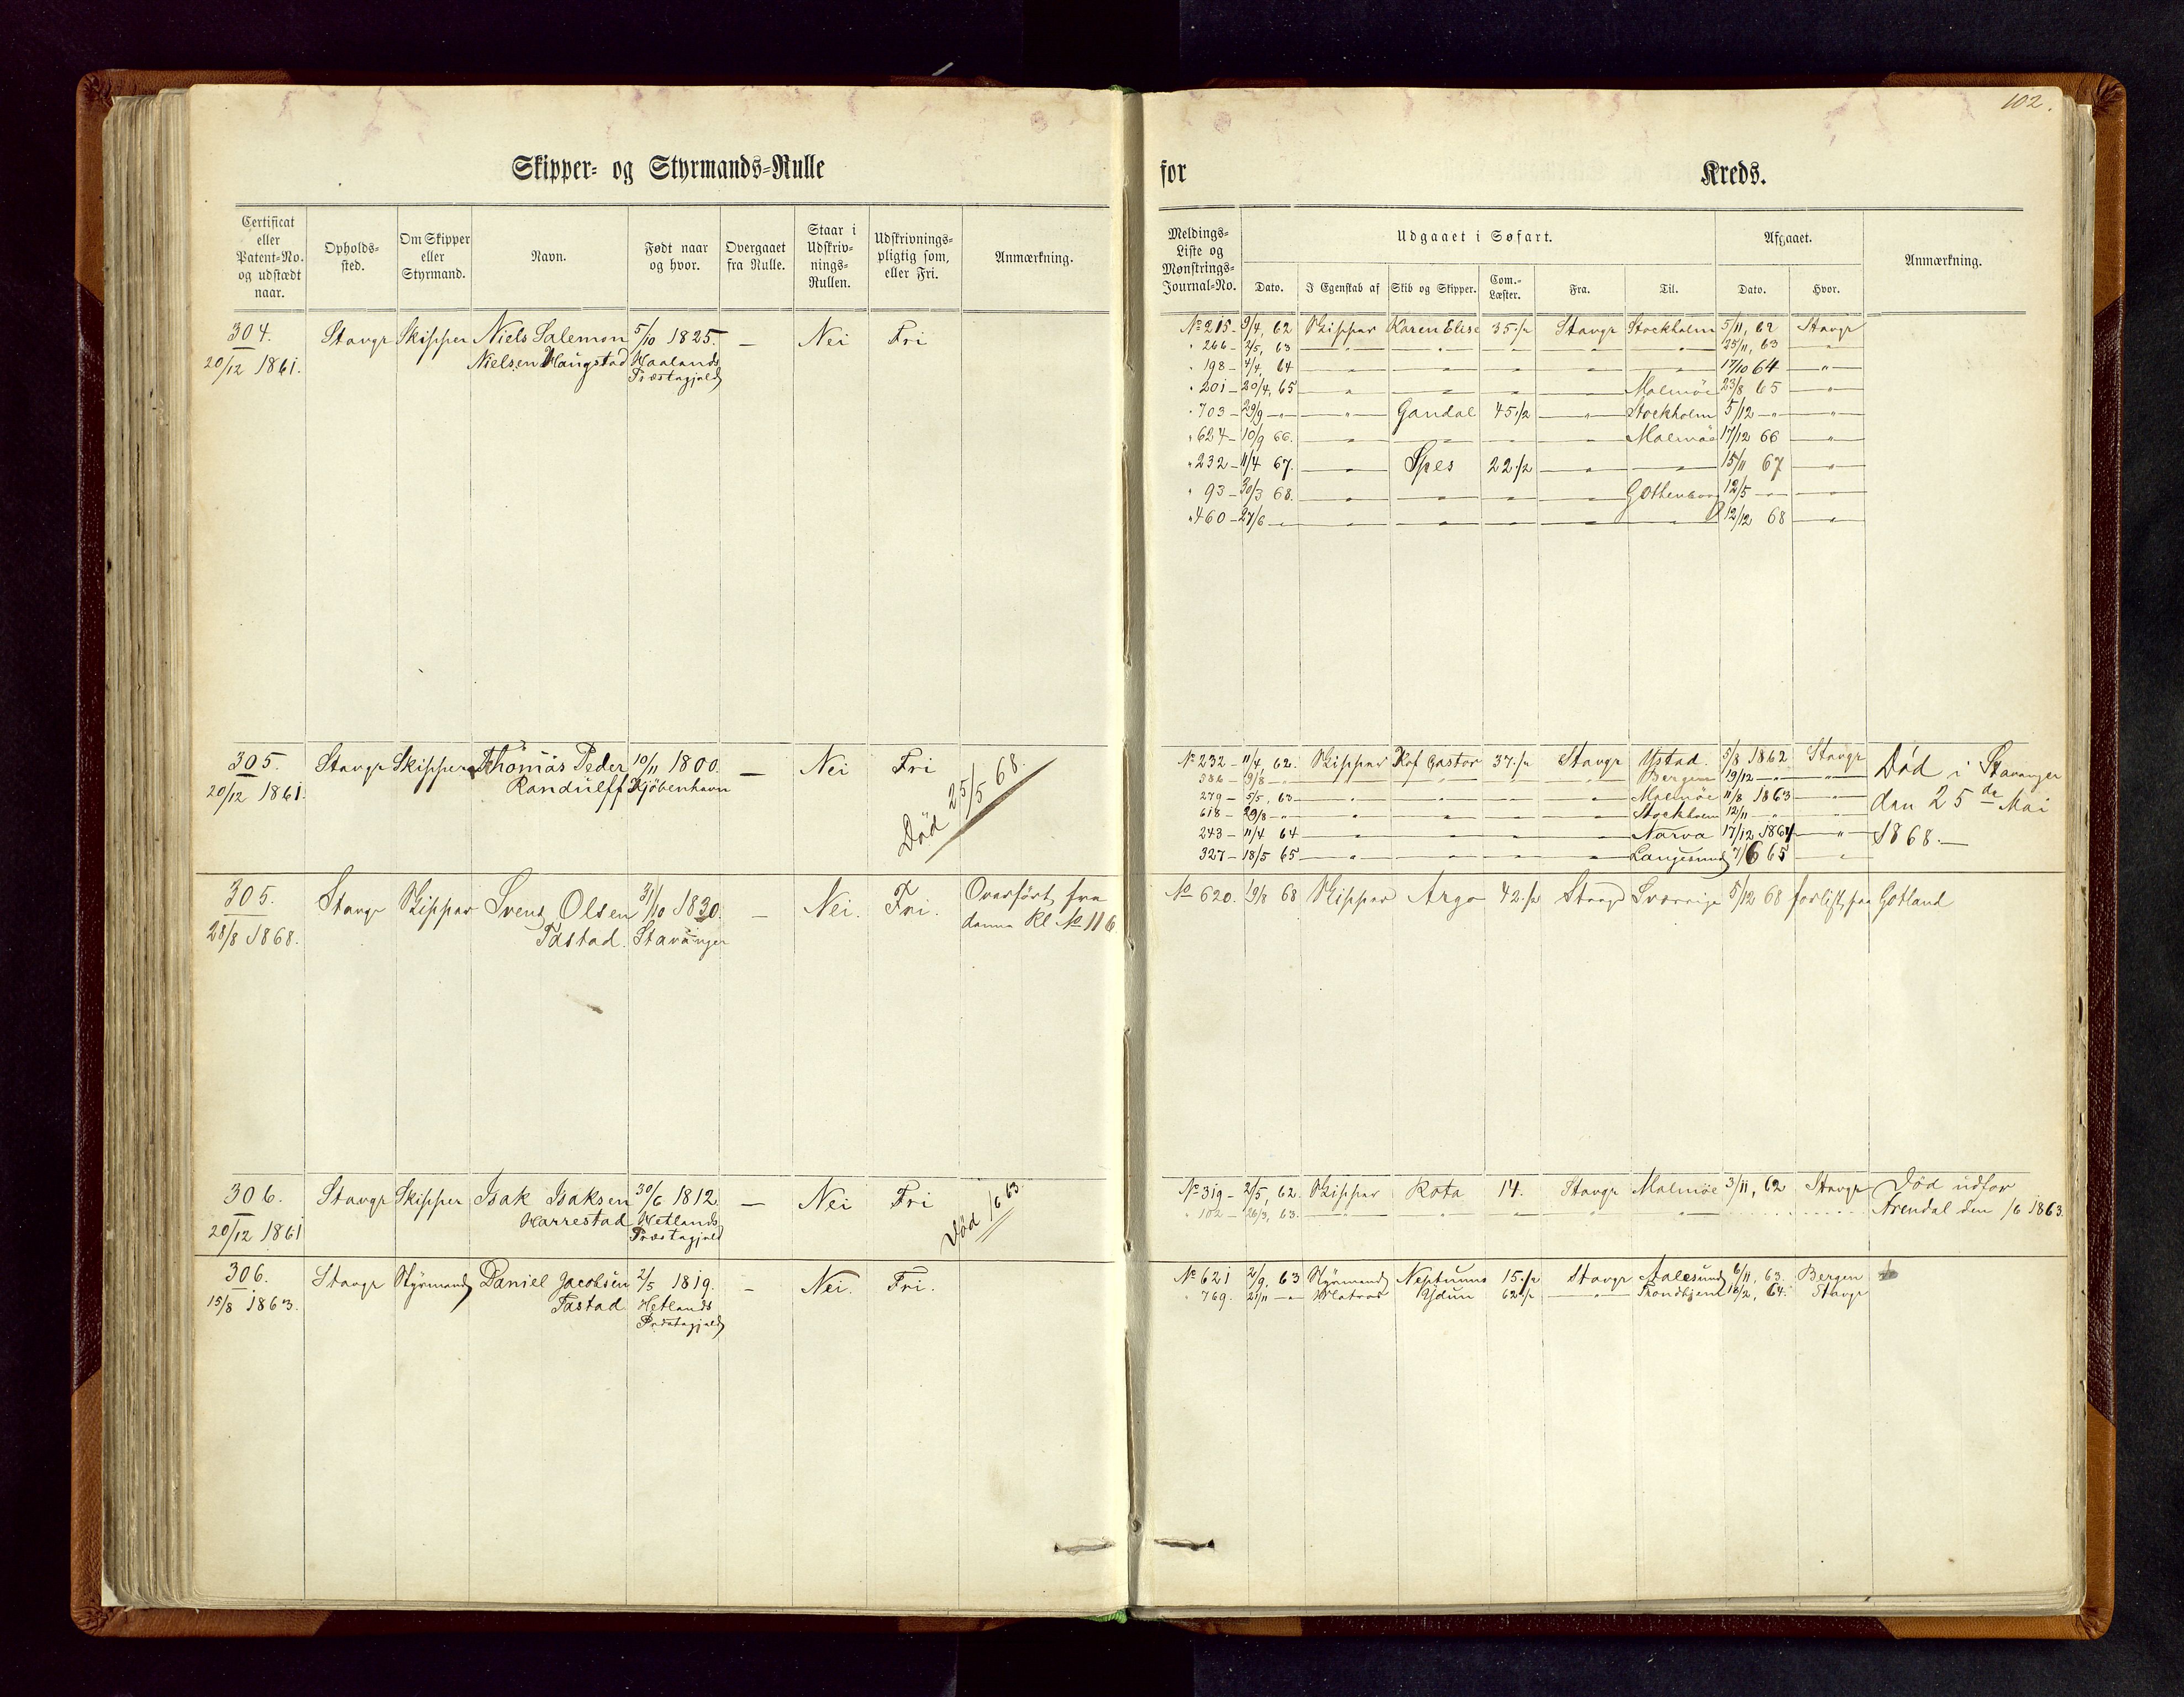 102.
Skipper- og Styrmands-Rulle
for Kreds.
Certificat eller Patent-No. og udstædt naar.
Opholds-sted.
Om Skipper eller Styrmand.
Navn.
Født naar og hvor.
Overgaaet fra Rulle.
Staar i Udskriv-nings-Rullen.
Udskrivnings-pligtig som, eller Fri.
Anmærkning.
Meldings-Liste og Mønstrings-Journal-No.
Udgaaet i Søfart.
Dato. I Egenskab af Skib og Skipper. Com.-Læster. Fra. Til.
Afgaaet.
Dato. Hvor.
Anmærkning.
304. Stavgr Skipper Niels Salemon 5/10 1825. — Nei Fri
20/12 1861. Nielsen Haugstad Haalands
Præstegjeld
No 215 - 9/4, 62 Skipper Karen Elise 35 1/2 Stavgr Stockholm 5/11, 62 Stavgr
" 266 - 2/5, 63 " " " " " 25/11, 63 "
" 198 - 4/4, 64 " " " " " 17/10 64 "
" 201 - 20/4, 65 " " " " Malmöe 23/8 65 "
" 703 - 29/9 - " - " Gandal 45 1/2 " Stockholm 5/12 - " - "
" 624 - 10/9 66. " " " " Malmöe 17/12 66 "
" 232 - 11/4 67. " Spes 22 1/2 " " 15/11 67 "
" 93 - 30/3 68. " " " " Gothenborg 12/5 - " - "
" 460 - 27/6 - " - " " " " " 12/12 68 "
305. Stavgr Skipper Thomas Peder 10/11 1800. — Nei Fri
20/12 1861. Randulff Kjöbenhavn
Död 25/5 68.
No 232 - 11/4, 62. Skipper Kof Castor 37 1/2 Stavgr Ystad. 5/8 1862. Stavgr Död i Stavanger
386 - 19/8 - " - " " " " Bergen 19/12 - " - "
279 - 5/5, 63 " " " " Malmöe 11/8 1863 " den 25de Mai
618 - 29/8 - " - " " " " Stockholm 12/11 - " - "
243 - 11/4 64 " " " " Narva 17/12 1864 " 1868.—
327 - 18/5 65 " " " " Langesund 7/6 65 "
305. Stavgr Skipper Svend Olsen 31/10 1830. — Nei. Fri. Overført fra
28/8 1868. Tastad. Stavanger denne Rl No 116
No 620. 19/8 68 Skipper Argo 42 1/2 Stavgr Sverrige 5/12 68 forlist paa Gotland
306. Stavgr Skipper Isak Isaksen 30/6 1812. — Nei Fri
20/12 1861 Harrestad Hetlands
Præstegjeld
Död 1/6 63.
No 319 - 2/5, 62. Skipper Rota 14. Stavgr Malmöe 3/11, 62 Stavgr Död udfor
" 102 - 26/3, 63. " " " " " Arendal den 1/6 1863.
306. Stavgr Styrmand Daniel Jacobsen 2/5 1819. — Nei. Fri.
15/8 1863. Tastad Hetlands
Præstegjeld
No 621 2/9, 63 Styrmand Neptunus 15 1/2 Stavgr Aalesund 6/11, 63. Bergen
" 769. 21/11 - " - Matros Ydun 62 1/2 " Trondhjem 18/2, 64. Stavgr